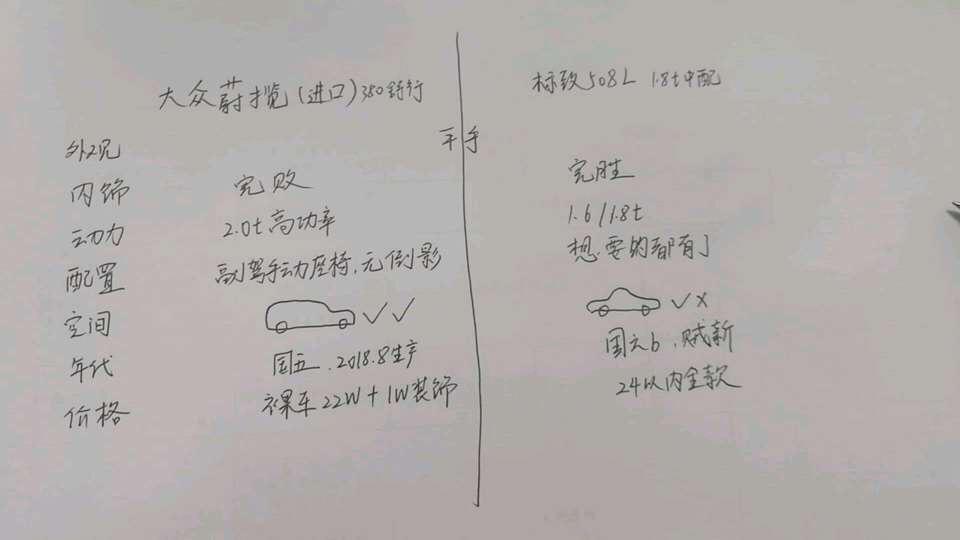 大众蔚揽(进口)380舒行
标致508L 1.8t中配
外观 平手
内饰 完败 完胜
动力 2.0t高功率 1.6/1.8t
配置 副驾手动座椅.无倒影 想要的都有了
空间 ✓✓ ✓×
年代 国五.2018.8生产 国六b.贼新
价格 裸车22W+1W装饰 24以内全款